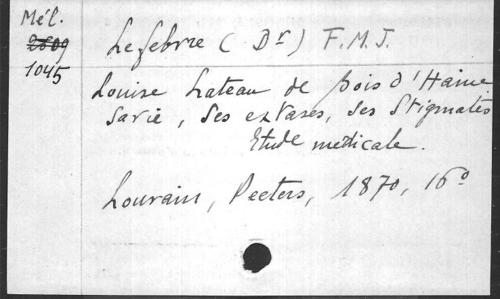 Mél.
2609
1045
Lefebvre (Dr) F.M.J.
Louise Lateau de Bois d'Haine
sa vie, ses extases, ses stigmates
Etude médicale.
Louvain, Peeters, 1870, 16o